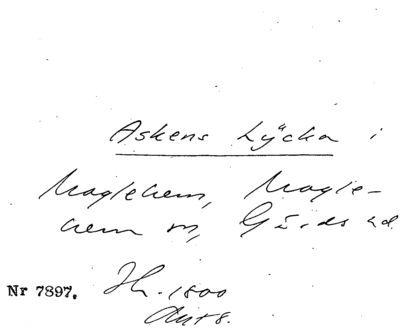 Askens Lÿcka i
Maglehem, Magle-
hem sn, Gärds hd.
Nr 7897. Jh. 1800
Akt 8.